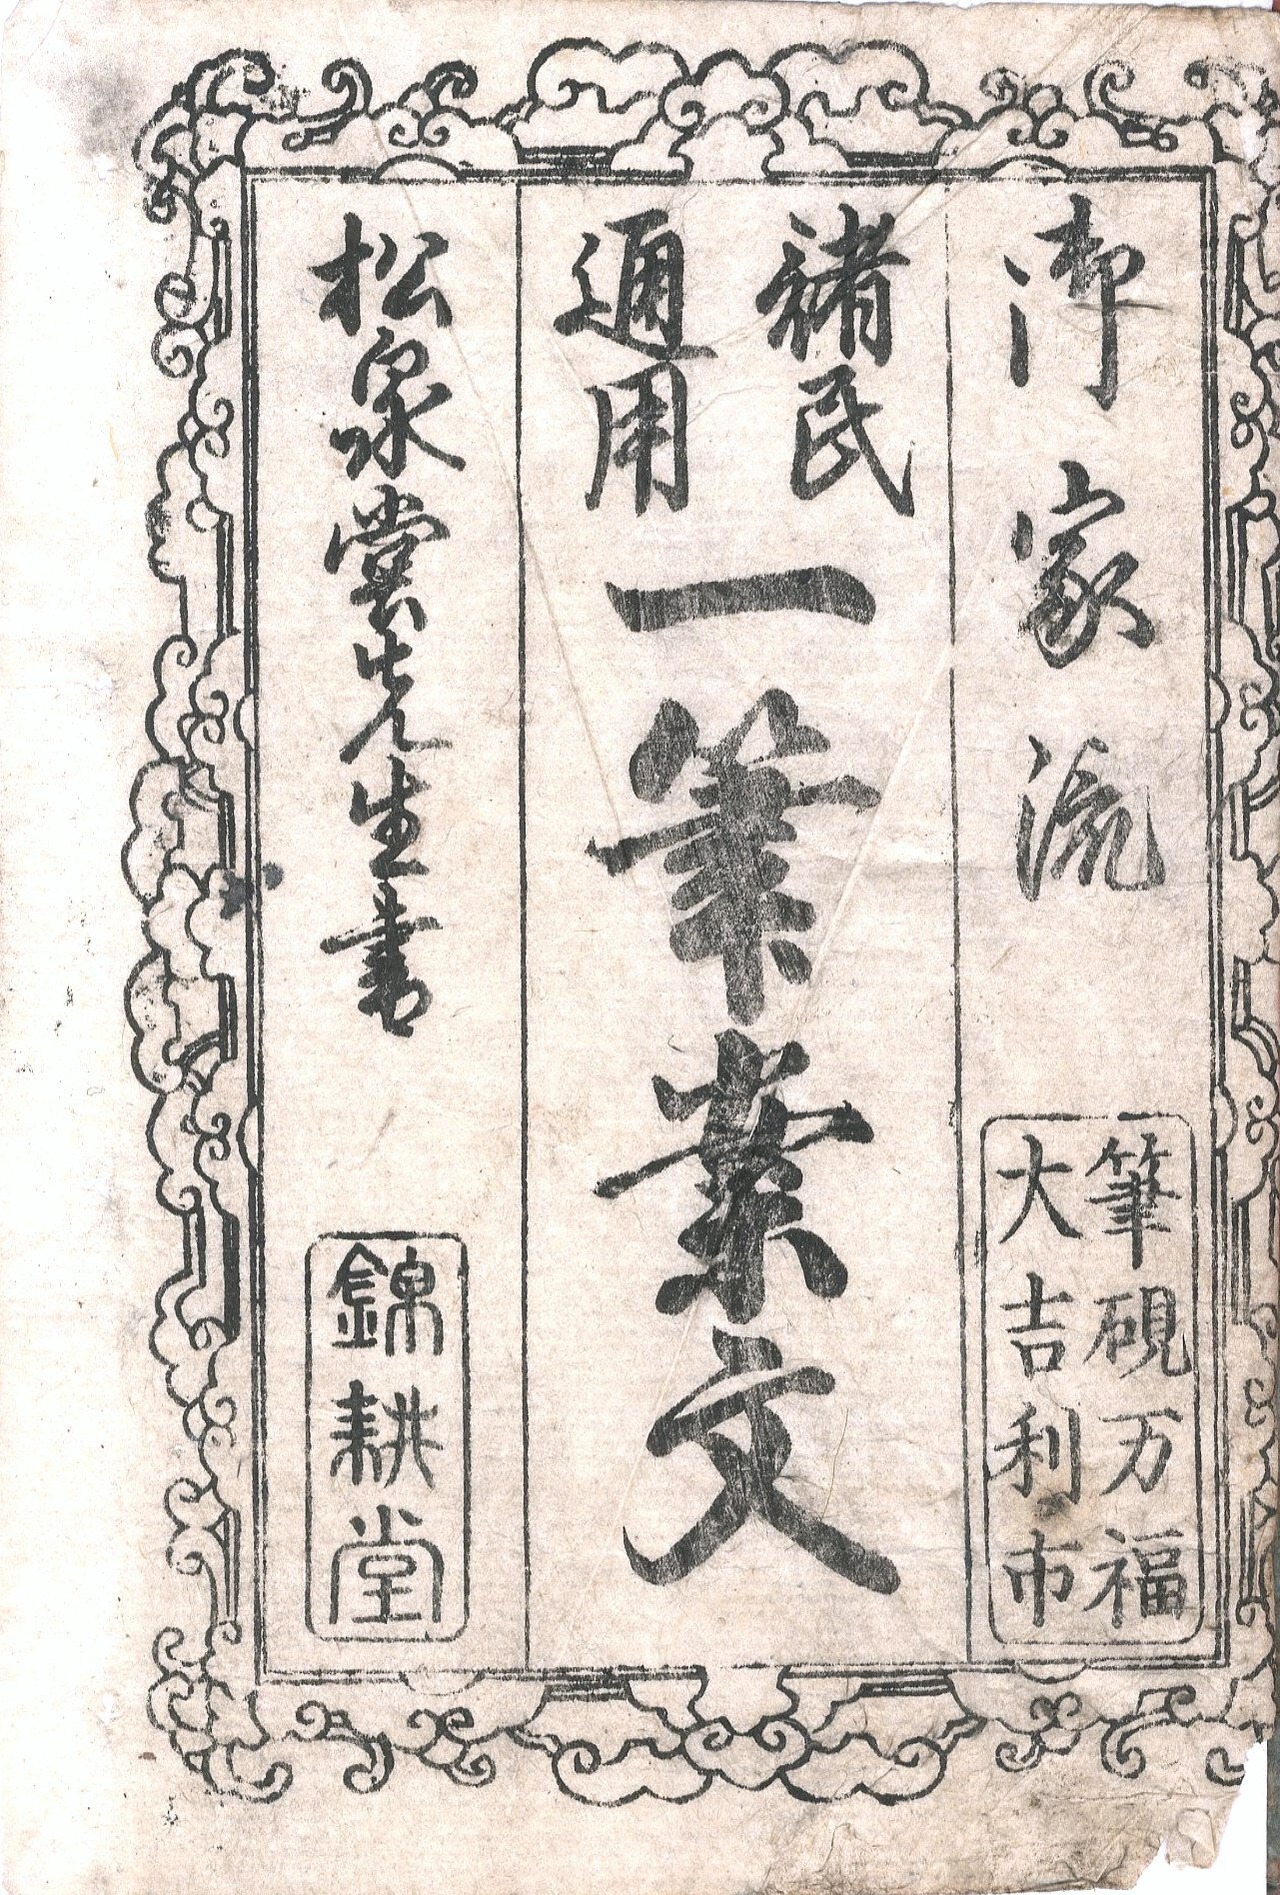 御家流
筆硯万福
大吉利市
諸民
通用
一筆案文
松泉堂先生書
錦耕堂